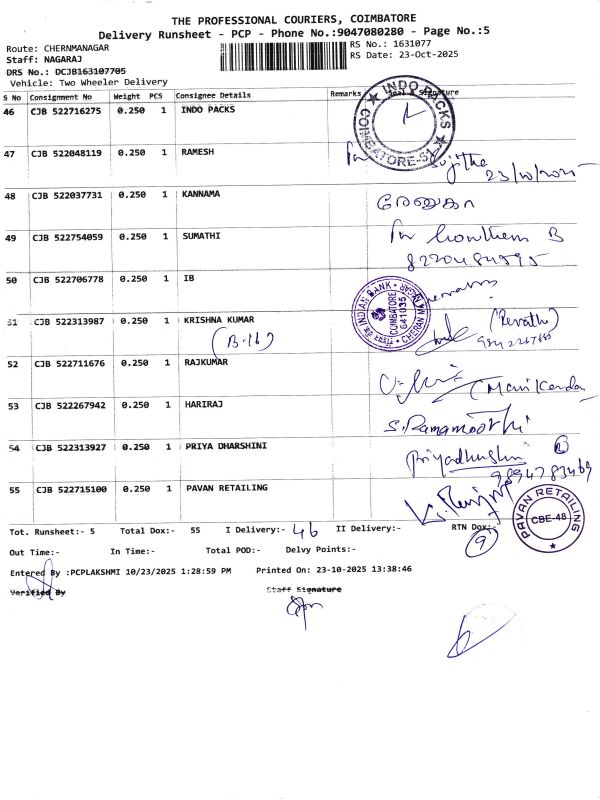 THE PROFESSIONAL COURIERS, COIMBATORE
Delivery Runsheet - PCP - Phone No.:9047080280 - Page No.:5
Route: CHERNMANAGAR
RS No.: 1631077
Staff: NAGARAJ
RS Date: 23-Oct-2025
DRS No.: DCJB163107705
Vehicle: Two Wheeler Delivery
S No Consignment No Weight PCS Consignee Details Remarks Seal & Signature
46 CJB 522716275 0.250 1 INDO PACKS
INDO PACKS
COIMBATORE-51
47 CJB 522048119 0.250 1 RAMESH
23/10/2025
48 CJB 522037731 0.250 1 KANNAMA
49 CJB 522754059 0.250 1 SUMATHI
B
50 CJB 522706778 0.250 1 IB
INDIAN BANK
COIMBATORE
641035
51 CJB 522313987 0.250 1 KRISHNA KUMAR
(B.16)
(Revathi)
52 CJB 522711676 0.250 1 RAJKUMAR
53 CJB 522267942 0.250 1 HARIRAJ
S. Ramamoorthi
54 CJB 522313927 0.250 1 PRIYA DHARSHINI
9894783469
55 CJB 522715100 0.250 1 PAVAN RETAILING
PAVAN RETAILING
CBE-48
Tot. Runsheet:- 5 Total Dox:- 55 I Delivery:- 46 II Delivery:- RTN Dox:- 9
Out Time:- In Time:- Total POD:- Delvy Points:-
Entered By :PCPLAKSHMI 10/23/2025 1:28:59 PM Printed On: 23-10-2025 13:38:46
Verified By Staff Signature